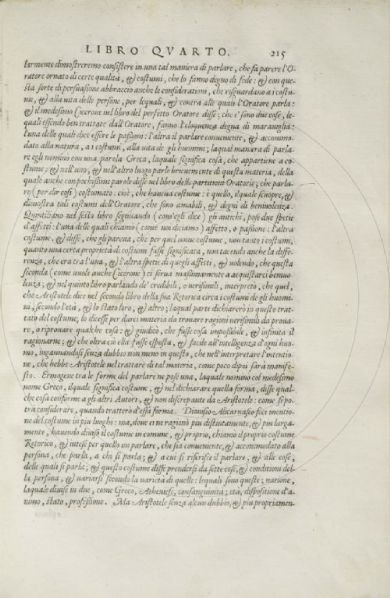 LIBRO QVARTO. 215
larmente dimostreremo consistere in una tal maniera di parlare, che fa parere l'O-
ratore ornato di certe qualità, & costumi, che lo fanno degno di fede: & con que-
sta sorte di persuasione abbraccio anche le considerationi, che risguardano a i costu-
mi, & alla vita delle persone, per lequali, & contra alle quali l'Oratore parla:
& il medesimo Cicerone nel libro del perfetto Oratore disse; che i sono due cose, le-
quali essendo ben trattate dall'Oratore, fanno l'eloquenza degna di maraviglia:
l'una delle quali dice essere le passioni: l'altra il parlare convenevole, & accommo-
dato alla natura, a i costumi, alla vita de gli huomini; laqual maniera di parla-
re egli nominò con una parola Greca, laquale significa cosa, che appartiene a co-
stume; & nell'uno, & nell'altro luogo parlò brevemente di questa materia, della
quale anche con pochissime parole disse nel libro delle partitioni Oratorie; che parla-
re (per dir così) costumato: ciò, che havesse costume: è quello, il quale scuopre, &
dimostra tali costumi dell'Oratore, che sono amabili, & degni di benivolenza.
Quintiliano nel sesto libro seguendo (com'egli dice) gli antichi, pose due spetie
d'affetti: l'una delle quali chiamò (come noi diciamo) affetto, o passione: l'altra
costume. & disse, che gli pareva, che per quel nome costume, non tanto i costumi,
quanto una certa proprietà di costumi fusse significata, non tacendo anche la diffe-
renza, che era tra l'una, & l'altra spetie di questi affetti, & volendo, che questa
seconda (come vuole anche Cicerone) ci serva massimamente a acquistarci benivo-
lenza; & nel quinto libro parlando de' credibili, o verisimili, interpretò, che quel,
che Aristotele dice nel secondo libro della sua Retorica circa i costumi de gli huomi-
ni, secondo l'età, & lo stato loro, & altro; laqual parte dichiarerò in questo trat-
tato del costume, lo dicesse per darci materia da trovare ragioni verisimili da prova-
re, o riprovare qualche cosa: & giudicò, che fusse cosa impossibile, & infinita il
ragionarne; & che ovvia ella fusse esposta, & facile all'intelligenza d'ogni huo-
mo, ingannandosi senza dubbio non meno in questo, che nell'interpretare l'intentio-
ne, che hebbe Aristotele nel trattare di tal materia, come poco dipoi sarà manife-
sto. Ermogene tra le forme del parlare ne pose una, laquale nominò col medesimo
nome Greco, il quale significa costume. & nel dichiarare quella forma, disse qual-
che cosa conforme a gli altri Autori, & non discrepante da Aristotele: come si po-
trà considerare, quando tratterò d'essa forma. Dionisio Alicarnaseo fece mentio-
ne del costume in più luoghi: ma, dove ei ne ragionò più distintamente, & più larga-
mente, havendo diviso il costume in comune, & proprio, chiamò il proprio costume
Retorico, & intese per quello un parlare, che sia conveniente, & accommodato alla
persona, che parla, a chi si parla; & a cui si riferisce il parlare, & alle cose,
delle quali si parla; & questo costume disse prendersi da sette cose, & conditioni del-
la persona, & variarsi secondo la varietà di quelle: lequali sono queste; natione,
laquale divise in due, come Greco, Atheniese, consanguinità, età, dispositione d'a-
nimo, stato, professione. Ma Aristotele senza alcun dubbio, & più propriamen-